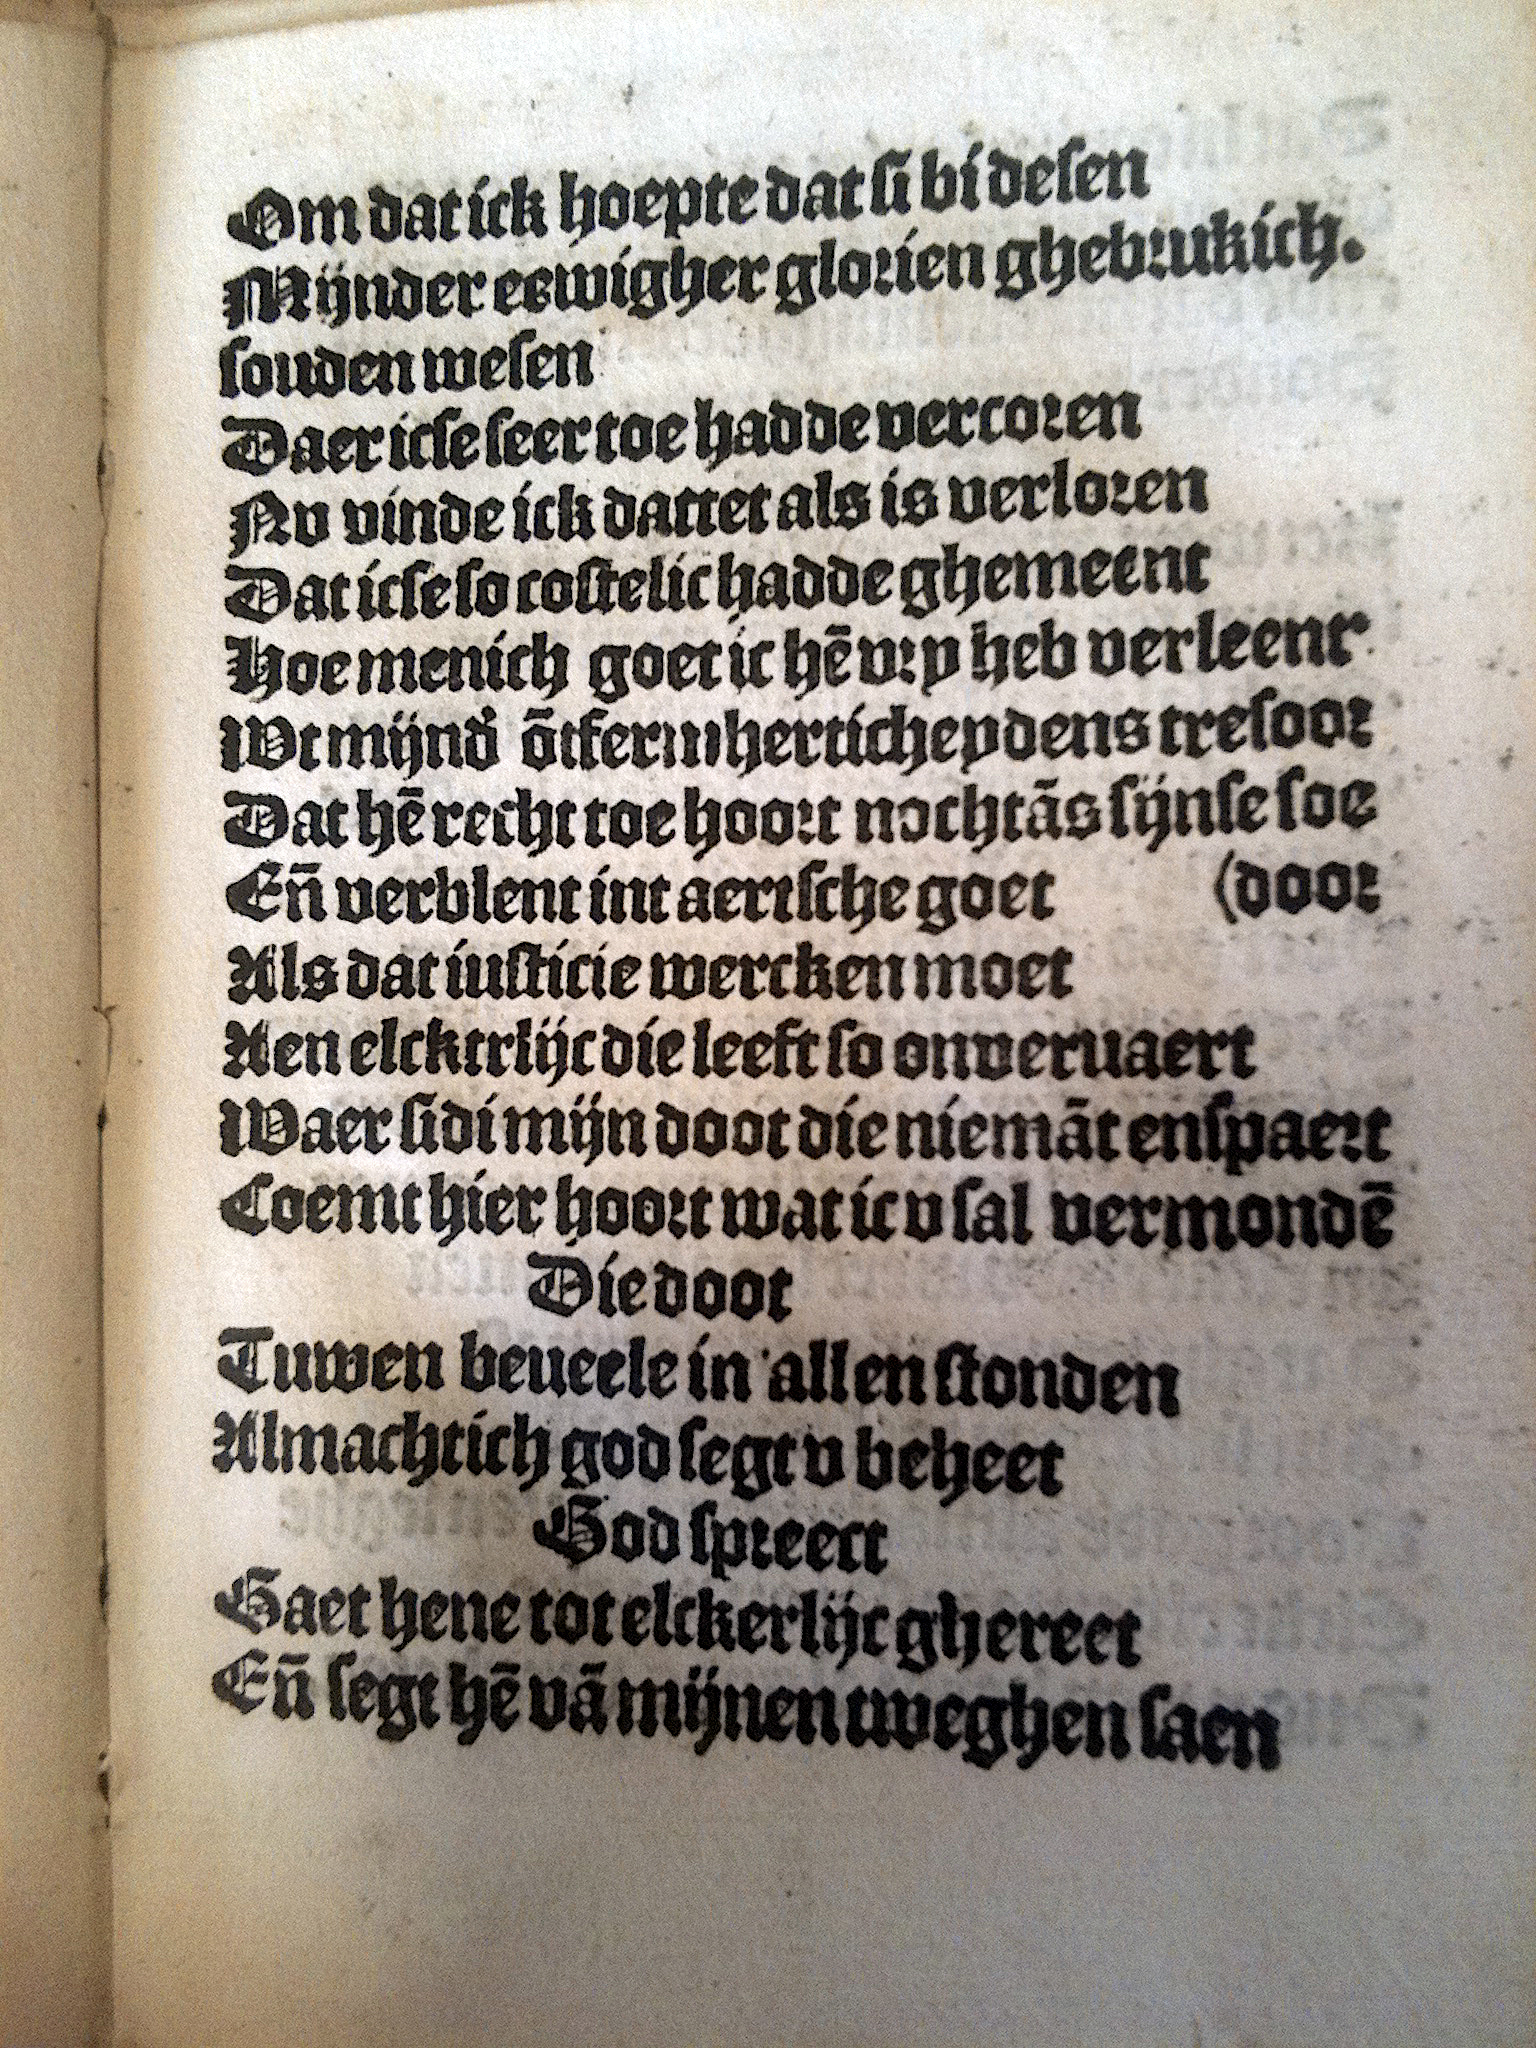 Om dat ick hoepte dat si bi desen
Mijnder eewigher glorien ghebrukich.
souden wesen
Daer icse seer toe hadde vercoren
Nv vinde ick dattet als is verloren
Dat icse so costelic hadde ghemeent
Hoe menich goet ic hē vry heb verleent
Wt mijnd' ōtfermherticheydens tresoor
Dat hē recht toe hoort nochtās sijnse soe
Eñ verblent int aertsche goet (door
Als dat iusticie wercken moet
Aen elcktrlijc die leeft so onveruaert
Waer sidi mijn doot die niemāt enspaert
Coemt hier hoort wat ic v sal vermondē
Die doot
Tuwen beueele in allen stonden
Almachtich god segt v beheet
God spreect
Gaet hene tot elckerlijc ghereet
Eñ segt hē vā mijnen tweghen saen